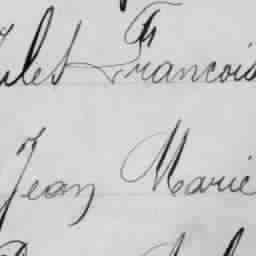 Jules François
Jean Marie